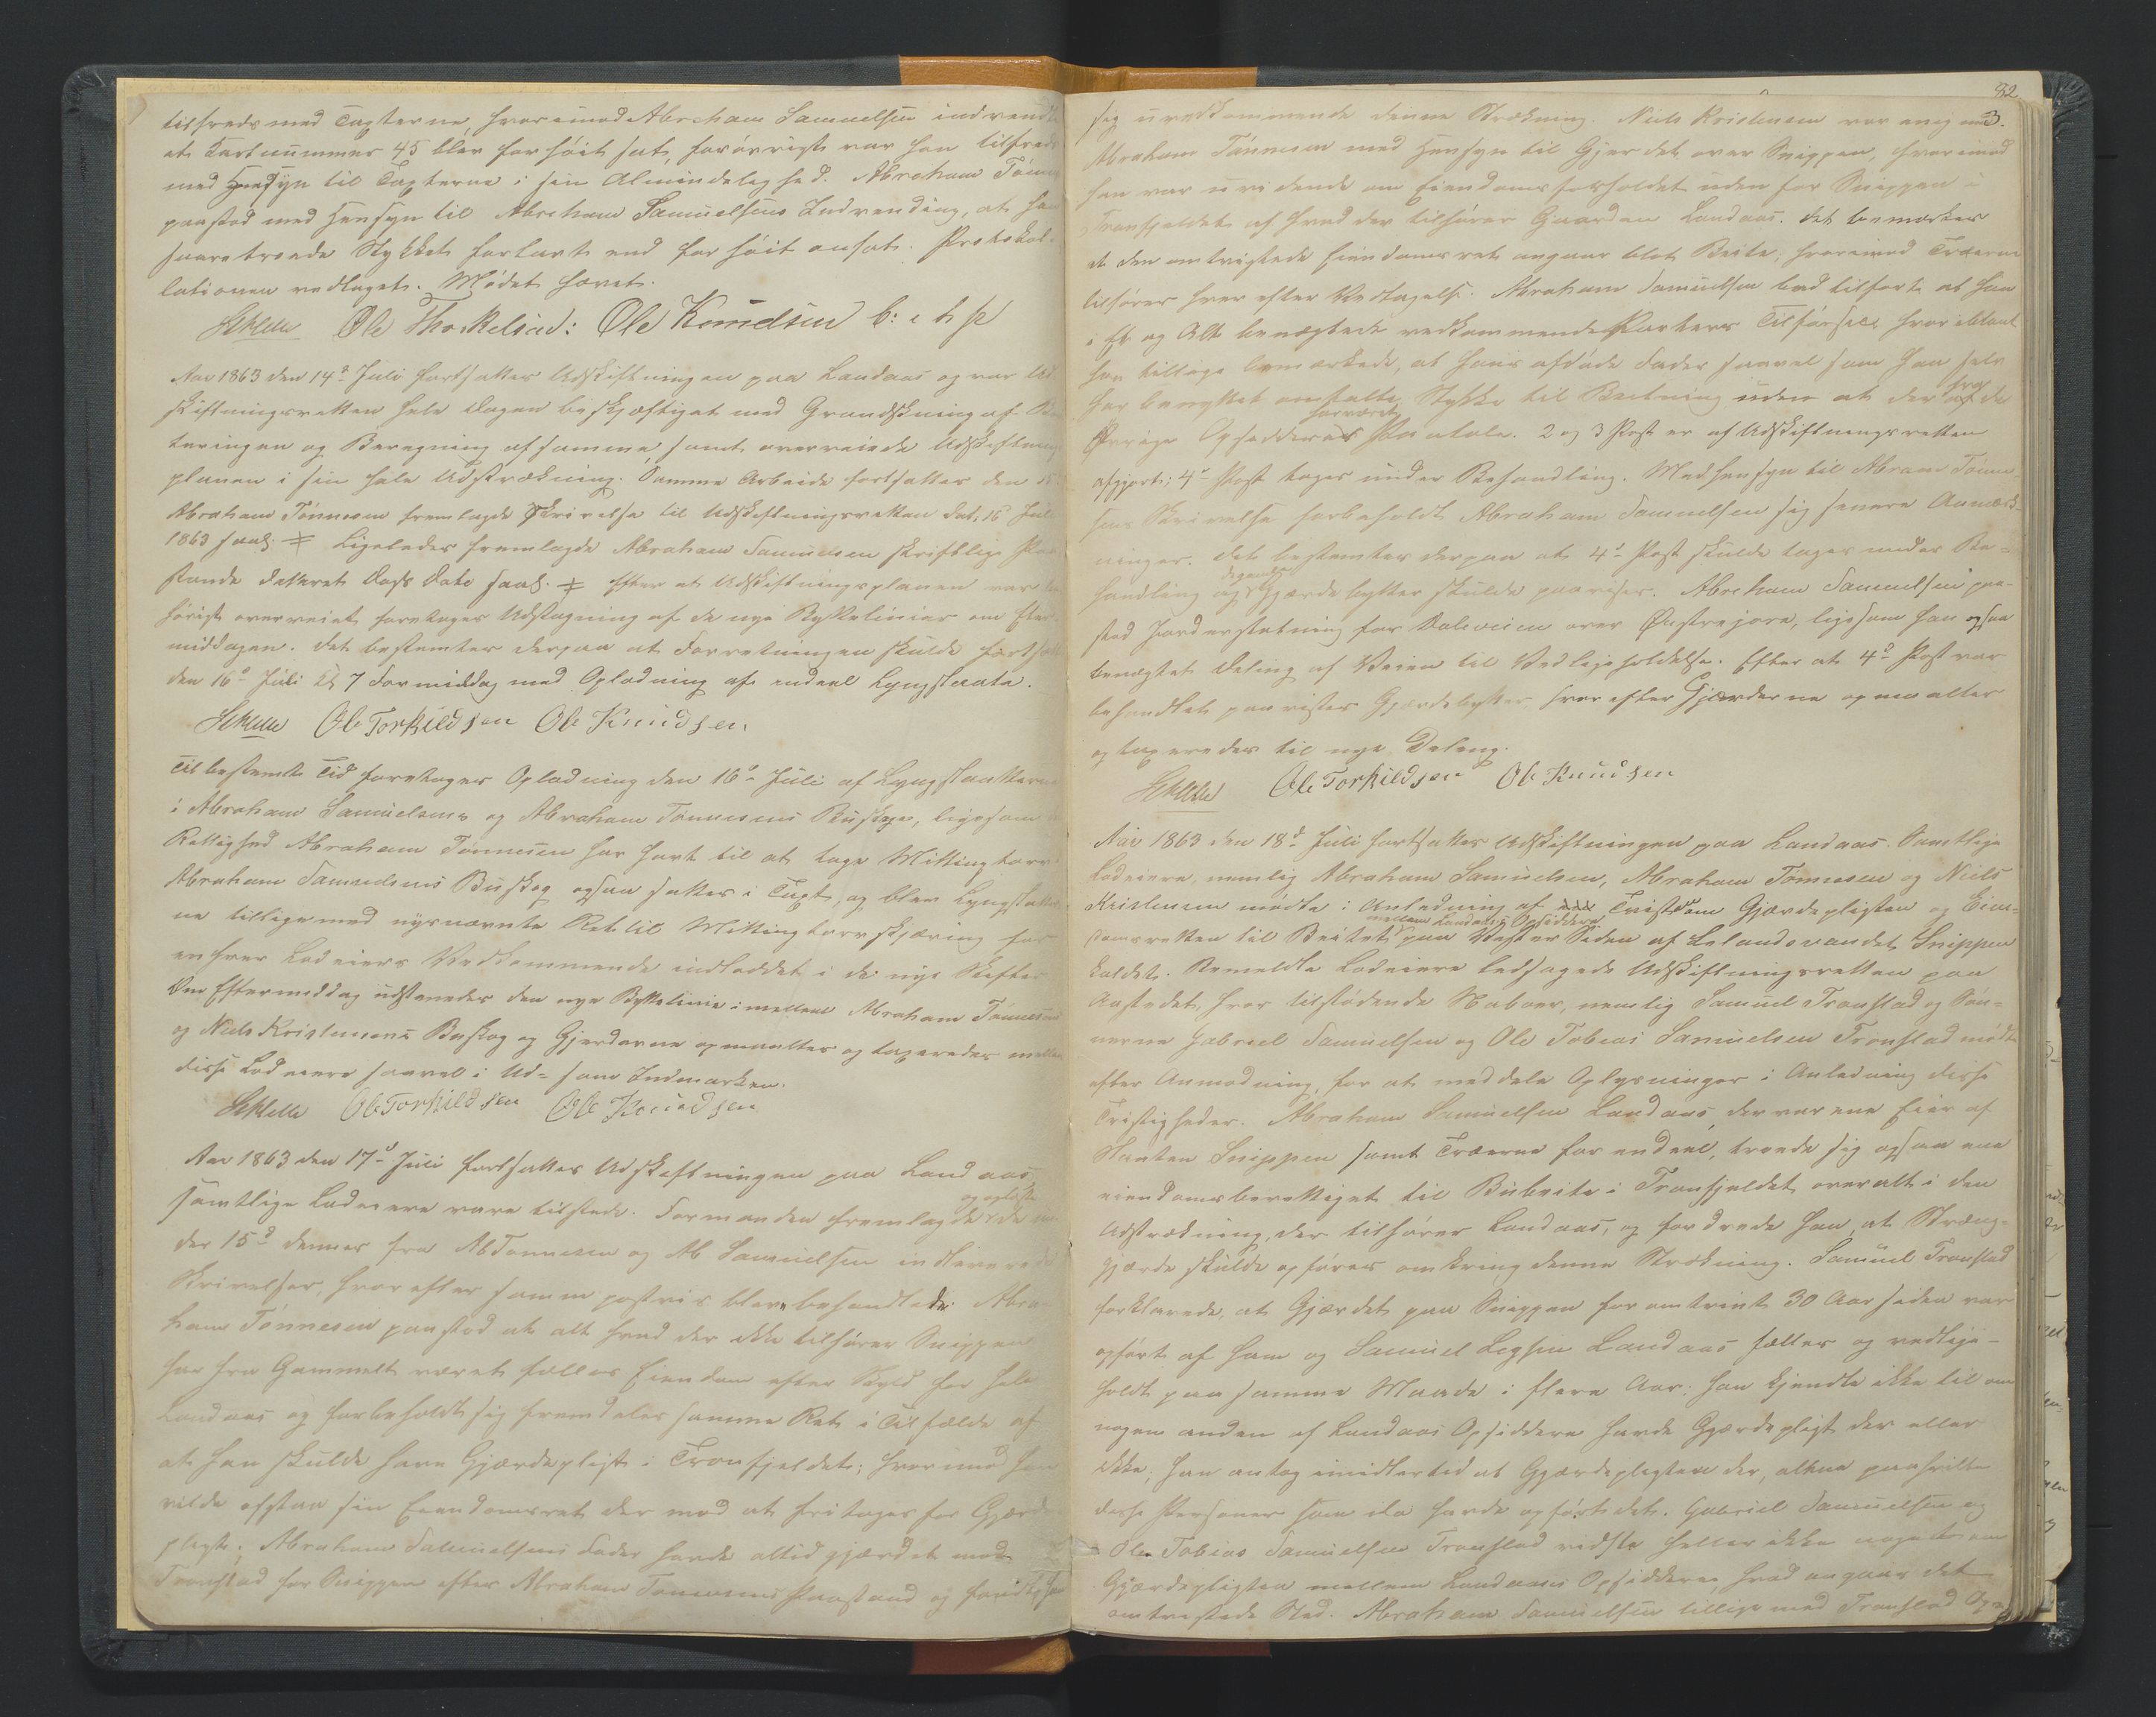 tilfreds med Taxterne, hvorimod Abraham Samuelsen indvendte
at Kartnummer 45 blev for høit sat, forøvrigt var han tilfreds
med Hensyn til Taxterne i sin Almindelighed. Abraham Tønnes
paastod med Hensyn til Abraham Samuelsens Indvending, at han
snare troede Stykket forlavt end for høit ansat. Protokol-
lationen vedtaget. Mødet hævet.
Ole Thorkelsen: Ole Knudsen
Aar 1863 den 14d Juli fortsattes Udskiftningen paa Landaas og var Ud-
skiftningsretten hele Dagen beskjæftiget med Grandskning af
teringen og Beregning af samme, samt overveiede Udskiftnings
planen i sin hele Udstrækning. Samme Arbeide fortsattes den 15
Abraham Tønnesen fremlagde Skrivelse til Udskiftningsretten dat. 16 Juli
1863 saal. ≠ Ligeledes fremlagde Abraham Samuelsen skriftlig Paa-
stande dateret Dags Dato saal. ≠ Efter at Udskiftningsplanen var be-
hørigt overveiet foretoges Udstagning af de nye Byttelinier om Efter-
middagen. Det bestemtes derpaa at Forretningen skulde fortsætt
den 16d Juli Kl 7 Formiddag med Oplodning af endeel Lyngslaata.
Ole Torkildsen Ole Knudsen.
Til bestemt Tid foretoges Oplodning den 16d Juli af Lyngslaatterne
i Abraham Samuelsens og Abraham Tønnesens Buskog, ligesom
Rettighed Abraham Tønnesen har havt til at tage Mitting torv
Abraham Samuelsens Buskog ogsaa sattes i Taxt, og blev Lyngslaatter
ne tilligemed nysnævnte Ret til Mittingtorvskjæring for
enhver Lodeiers Vedkommende indloddet i de nye Skifter
Om Eftermiddag udstavedes den nye Byttelinie imellem Abraham Tønnesens
og Niels Kristensens Buskog og Gjerderne opmaaltes og taxeredes mellem
disse Lodeiere saavel i Ud- som Indmarken.
Ole Torkildsen Ole Knudsen
Aar 1863 den 17d Juli fortsattes Udskiftningen paa Landaas
samtlige Lodeiere vare tilstede. Formanden fremlagde og oplæste de un-
der 15d dennes fra Ab Tønnesen og Ab Samuelsen indleverede
Skrivelser, hvorefter samme postvis bleve behandlede. Abra-
ham Tønnesen paastod at alt hvad der ikke tilhører Snippen
har fra Gammelt været fælles Eiendom efter Skyld for hele
Landaas og forbeholdt sig fremdeles samme Ret i Tilfælde af
at han skulde have Gjærdepligt i Tronfjeldet; hvorimod han
vilde afstaa sin Eiendomsret der mod at fritages for Gjærde
pligt; Abraham Samuelsens Fader havde altid gjærdet mod
Tronstad for Snippen efter Abraham Tønnesens Paastand og
82
3.
sig uvedkommende denne Strækning. Niels Kristensen var enig med
Abraham Tønnesen med Hensyn til Gjerdet over Snippen, hvorimod
han var uvidende om Eiendomsforholdet uden for Snippen i
Tronfjeldet af hvad der tilhører Gaarden Landaas. Det bemærkes
at den omtvistede Eiendomsret angaar blot Beite; hvorimod Træerne
tilhører hver efter Vedtagelse. Abraham Samuelsen bad tilført at han
i Et og Alt benægtede vedkommende Parters Tilførsel, hvoriblant
han tillige bemærkede, at hans afdøde Fader saavel som han selv
har benyttet omtalte Stykke til Beitning uden at der fra de
Øvrige Opsiddere har været Paatale. 2 og 3 Post er af Udskiftningsretten
afgjort; 4d Post toges under Behandling. Med Hensyn til Abram Tønne-
sens Skrivelse forbeholdt Abraham Samuelsen sig senere Anmærk-
ninger. Det bestemtes derpaa at 4d Post skulde tages under Be-
handling og Gjærdebytter skulde paavises. Abraham Samuelsen paa-
stod Jorderstatning for Doleveien over Østrejore, ligesom han ogsaa
benegtet Deling af Veien til Vedligeholdelse. Efter at 4d Post var
behandlet paavistes Gjærdebytter, hvorefter Gjærderne opmaaltes
og taxeredes til nye Deling.
Ole Torkildsen Ole Knudsen
Aar 1863 den 18d Juli fortsattes Udskiftningen paa Landaas. Samtlige
Lodeiere, nemlig Abraham Samuelsen, Abraham Tønnesen og Niels
Kristensen mødte i Anledning af Tvist om Gjærdepligten og Eien-
mellem Landaas Opsiddere
domsretten til Beitet paa Vester Siden af Lelandsvandet Snippen
kaldet. Bemeldte Lodeiere ledsagede Udskiftningsretten paa
Aastedet, hvor tilstødende Naboer, nemlig Samuel Tronstad og Søn-
nerne Gabriel Samuelsen og Ole Tobias Samuelsen Tronstad mødte
efter Anmodning, for at meddele Oplysninger i Anledning disse
Tvistigheder. Abraham Samuelsen Landaas, der var ene Eier af
Slaatten Snippen samt Træerne for endeel, troede sig ogsaa ene
eiendomsberettiget til Bubeite i Tronfjeldet overalt i den
Udstrækning, der tilhører Landaas, og fordrede han, at Stræng-
gjærde skulde opføres omkring denne Strækning. Samuel Tronstad
forklarede, at Gjærdet paa Snippen for omtrent 30 Aar siden var
opført af ham og Samuel Landaas fælles og vedlige-
holdt paa samme Maade i flere Aar; han kjendte ikke til om
nogen anden af Landaas Opsiddere havde Gjærdepligt der eller
ikke; han antog imidlertid at Gjærdepligten der, altsaa paahvilte
disse Personer som da havde opført det. Gabriel Samuelsen og
Ole Tobias Samuelsen Tronstad vidste heller ikke noget om
Gjærdepligten mellem Landaas Opsiddere, hvad angaar det
omtvistede Sted. Abraham Samuelsen tillige med Tronstad